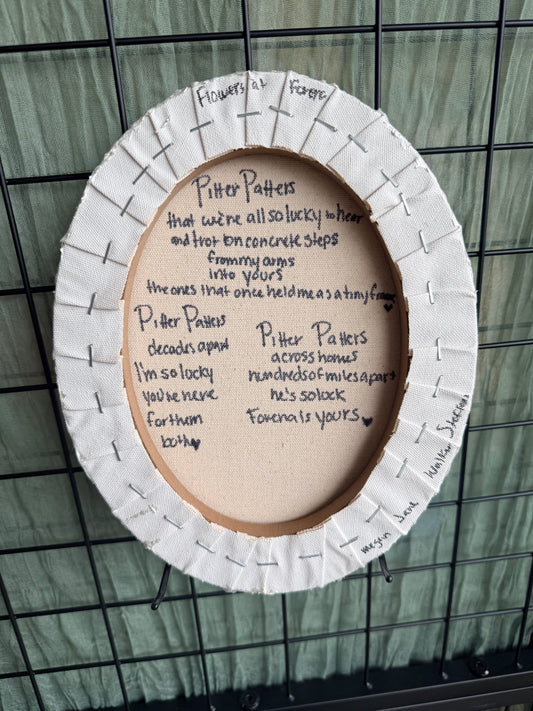 Flowers at
Pitter Patters
that we're all so lucky to hear
and trot on concrete steps
from my arms
into yours
the ones that once held me as a tiny frame
Pitter Patters
decades apart
I'm so lucky
you're here
for them
both ♥
Pitter Patters
across homes
hundreds of miles apart
he's so lock
Forena is yours ♥
Megan Jane Walker